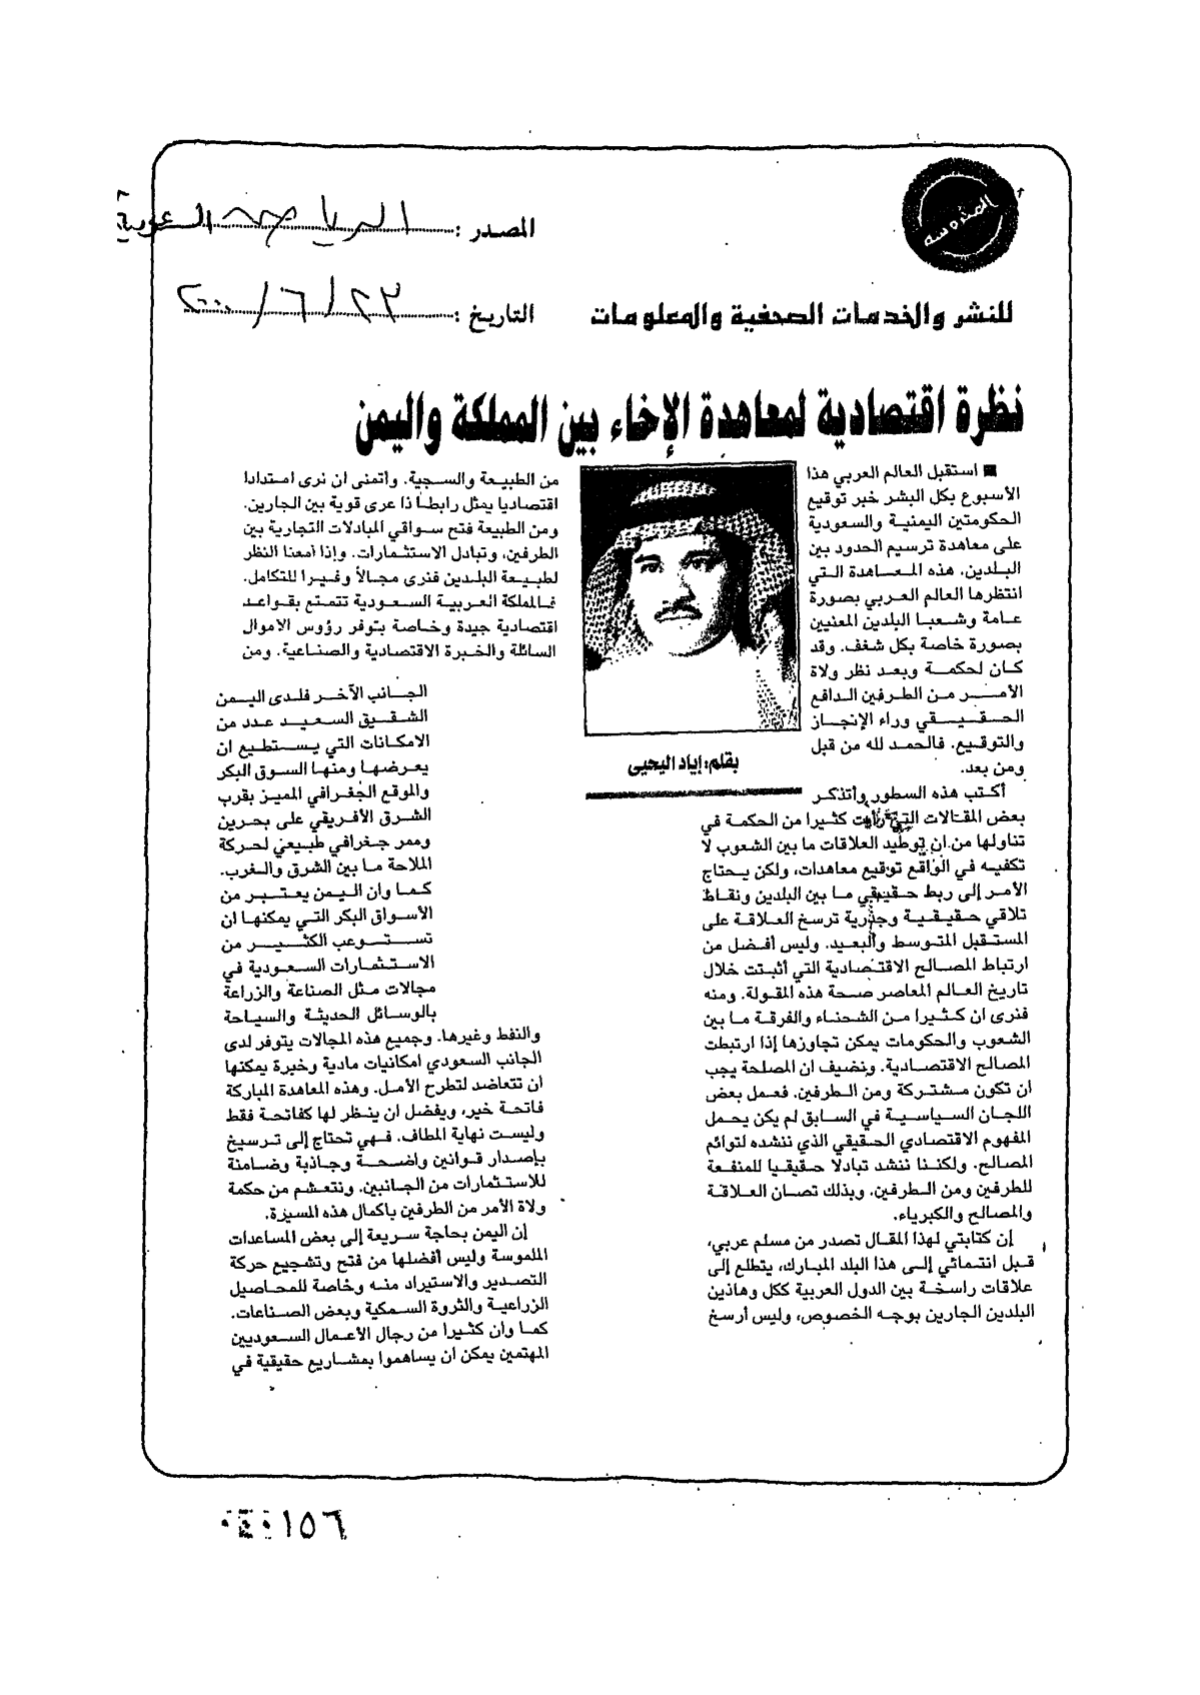 المصدر : الرياض السعودية
للنشر والخدمات الصحفية والمعلومات
التاريخ : ٢٣ / ٦ / ٢٠٠٠
نظرة اقتصادية لمعاهدة الإخاء بين المملكة واليمن
استقبل العالم العربي هذا
الأسبوع بكل البشر خبر توقيع
الحكومتين اليمنية والسعودية
على معاهدة ترسيم الحدود بين
البلدين. هذه المعاهدة التي
انتظرها العالم العربي بصورة
عامة وشعبا البلدين المعنيين
بصورة خاصة بكل شغف. وقد
كان لحكمة وبعد نظر ولاة
الأمر من الطرفين الدافع
الحقيقي وراء الإنجاز
والتوقيع. فالحمد لله من قبل
ومن بعد.
بقلم: إياد اليحيى
أكتب هذه السطور وأتذكر
بعض المقالات التي رأيت كثيرا من الحكمة في
تناولها من ان توطيد العلاقات ما بين الشعوب لا
تكفيه في الواقع توقيع معاهدات، ولكن يحتاج
الأمر إلى ربط حقيقي ما بين البلدين ونقاط
تلاقي حقيقية وجذرية ترسخ العلاقة على
المستقبل المتوسط والبعيد. وليس أفضل من
ارتباط المصالح الاقتصادية التي أثبتت خلال
تاريخ العالم المعاصر صحة هذه المقولة. ومنه
فنرى ان كثيرا من الشحناء والفرقة ما بين
الشعوب والحكومات يمكن تجاوزها إذا ارتبطت
المصالح الاقتصادية. ونضيف ان المصلحة يجب
ان تكون مشتركة ومن الطرفين. فعمل بعض
اللجان السياسية في السابق لم يكن يحمل
المفهوم الاقتصادي الحقيقي الذي ننشده لتوائم
المصالح. ولكننا ننشد تبادلا حقيقيا للمنفعة
للطرفين ومن الطرفين. وبذلك تصان العلاقة
والمصالح والكبرياء.
إن كتابتي لهذا المقال تصدر من مسلم عربي،
قبل انتمائي إلى هذا البلد المبارك، يتطلع إلى
علاقات راسخة بين الدول العربية ككل وهاذين
البلدين الجارين بوجه الخصوص، وليس أرسخ
من الطبيعة والسجية. وأتمنى ان نرى امتدادا
اقتصاديا يمثل رابطا ذا عرى قوية بين الجارين.
ومن الطبيعة فتح سواقي المبادلات التجارية بين
الطرفين، وتبادل الاستثمارات. وإذا أمعنا النظر
لطبيعة البلدين فنرى مجالاً وفيرا للتكامل.
فالمملكة العربية السعودية تتمتع بقواعد
اقتصادية جيدة وخاصة بتوفر رؤوس الاموال
السائلة والخبرة الاقتصادية والصناعية. ومن
الجانب الآخر فلدى اليمن
الشقيق السعيد عدد من
الامكانات التي يستطيع ان
يعرضها ومنها السوق البكر
والموقع الجغرافي المميز بقرب
الشرق الأفريقي على بحرين
وممر جغرافي طبيعي لحركة
الملاحة ما بين الشرق والغرب.
كما وان اليمن يعتبر من
الأسواق البكر التي يمكنها ان
تستوعب الكثير من
الاستثمارات السعودية في
مجالات مثل الصناعة والزراعة
بالوسائل الحديثة والسياحة
والنفط وغيرها. وجميع هذه المجالات يتوفر لدى
الجانب السعودي امكانيات مادية وخبرة يمكنها
ان تتعاضد لتطرح الأمل. وهذه المعاهدة المباركة
فاتحة خير، ويفضل ان ينظر لها كفاتحة فقط
وليست نهاية المطاف. فهي تحتاج إلى ترسيخ
بإصدار قوانين واضحة وجاذبة وضامنة
للاستثمارات من الجانبين. ونتعشم من حكمة
ولاة الأمر من الطرفين باكمال هذه المسيرة.
إن اليمن بحاجة سريعة إلى بعض المساعدات
الملموسة وليس أفضلها من فتح وتشجيع حركة
التصدير والاستيراد منه وخاصة للمحاصيل
الزراعية والثروة السمكية وبعض الصناعات.
كما وان كثيرا من رجال الأعمال السعوديين
المهتمين يمكن ان يساهموا بمشاريع حقيقية في